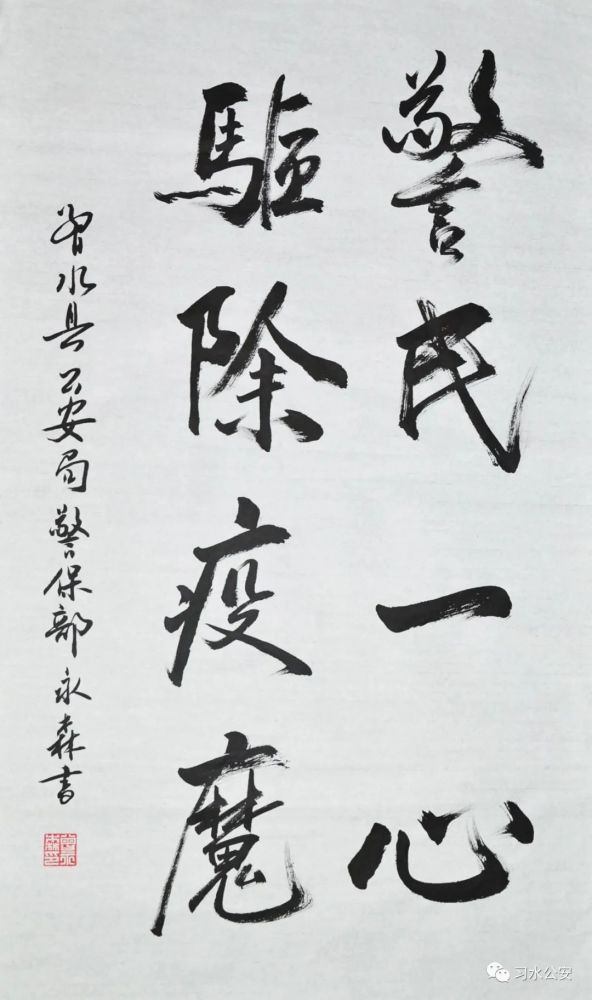 警民一心
驅除疫魔
習水县公安局警保部永森書
习水公安